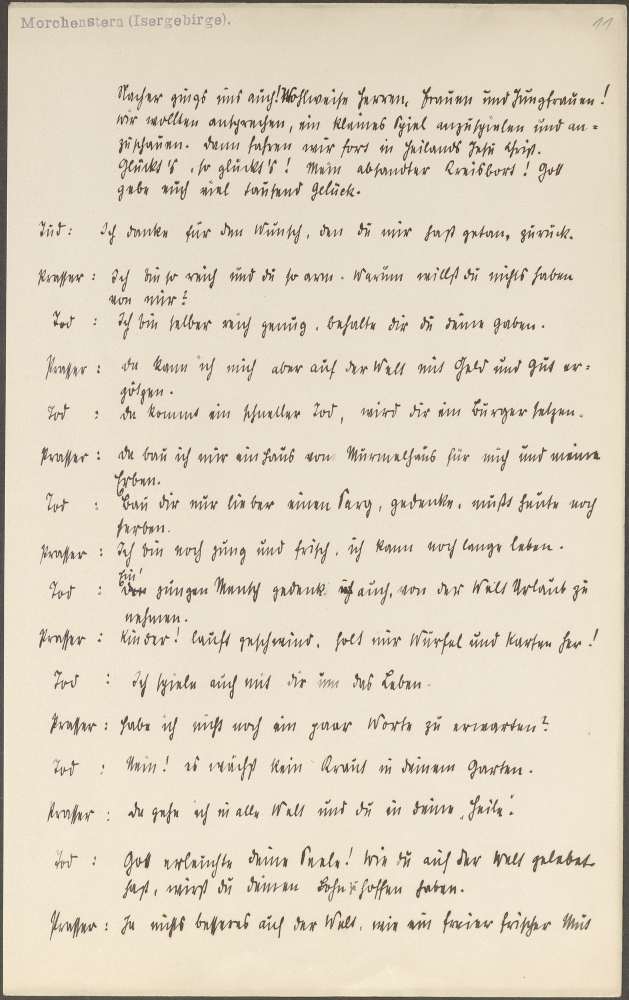 Morchenstern (Isergebirge).
11
Nacher gings uns auch! Wohlweise Herren, Frauen und Jungfrauen!
wir wollten ansprechen, ein kleines Spiel anzuspielen und an-
zuschauen. Dann fahren wir fort in Heilands Jesu Christ.
Glückt's, so glückt's! Mein absandter Kreisbort! Gott
gebe euch viel tausend Glück.
Tud: Ich danke für den Wunsch, den du mir hast getan, zurück.
Prasser: Ich bin so reich und du so arm. Warum willst du nichts haben
von mir?
Tod: Ich bin selber reich genug, behalte dir du deine Gaben.
Prasser: Da kann ich mich aber auf der Welt mit Geld und Gut er-
götzen.
Tod: Da kommt ein schneller Tod, wird dir ein Bürger setzen.
Prasser: Da bau ich mir ein Haus von Murmelhaus für mich und meine
Erben.
Tod: Bau dir nur lieber einen Sarg, gedenke, mußt heute noch
sterben.
Prasser: Ich bin noch jung und frisch, ich kann noch lange leben.
Tod: jungen Mensch gedenk auch, von der Welt Urlaub zu
nehmen.
Prasser: Kinder! lauft geschwind, holt mir Würfel und Karten her!
Tod: Ich spiele auch mit dir um das Leben.
Prasser: Habe ich nicht noch ein paar Worte zu erwarten?
Tod: Nein! es wächst kein Kraut in deinem Garten.
Prasser: Da gehe ich in alle Welt und du in deine "Heile".
Tod: Gott erleuchte deine Seele! Wie du auf der Welt gelebet
hast, wirst du deinen Lohn hoffen haben.
Prasser: Ja nichts besseres auf der Welt, wie ein freier frischer Mut